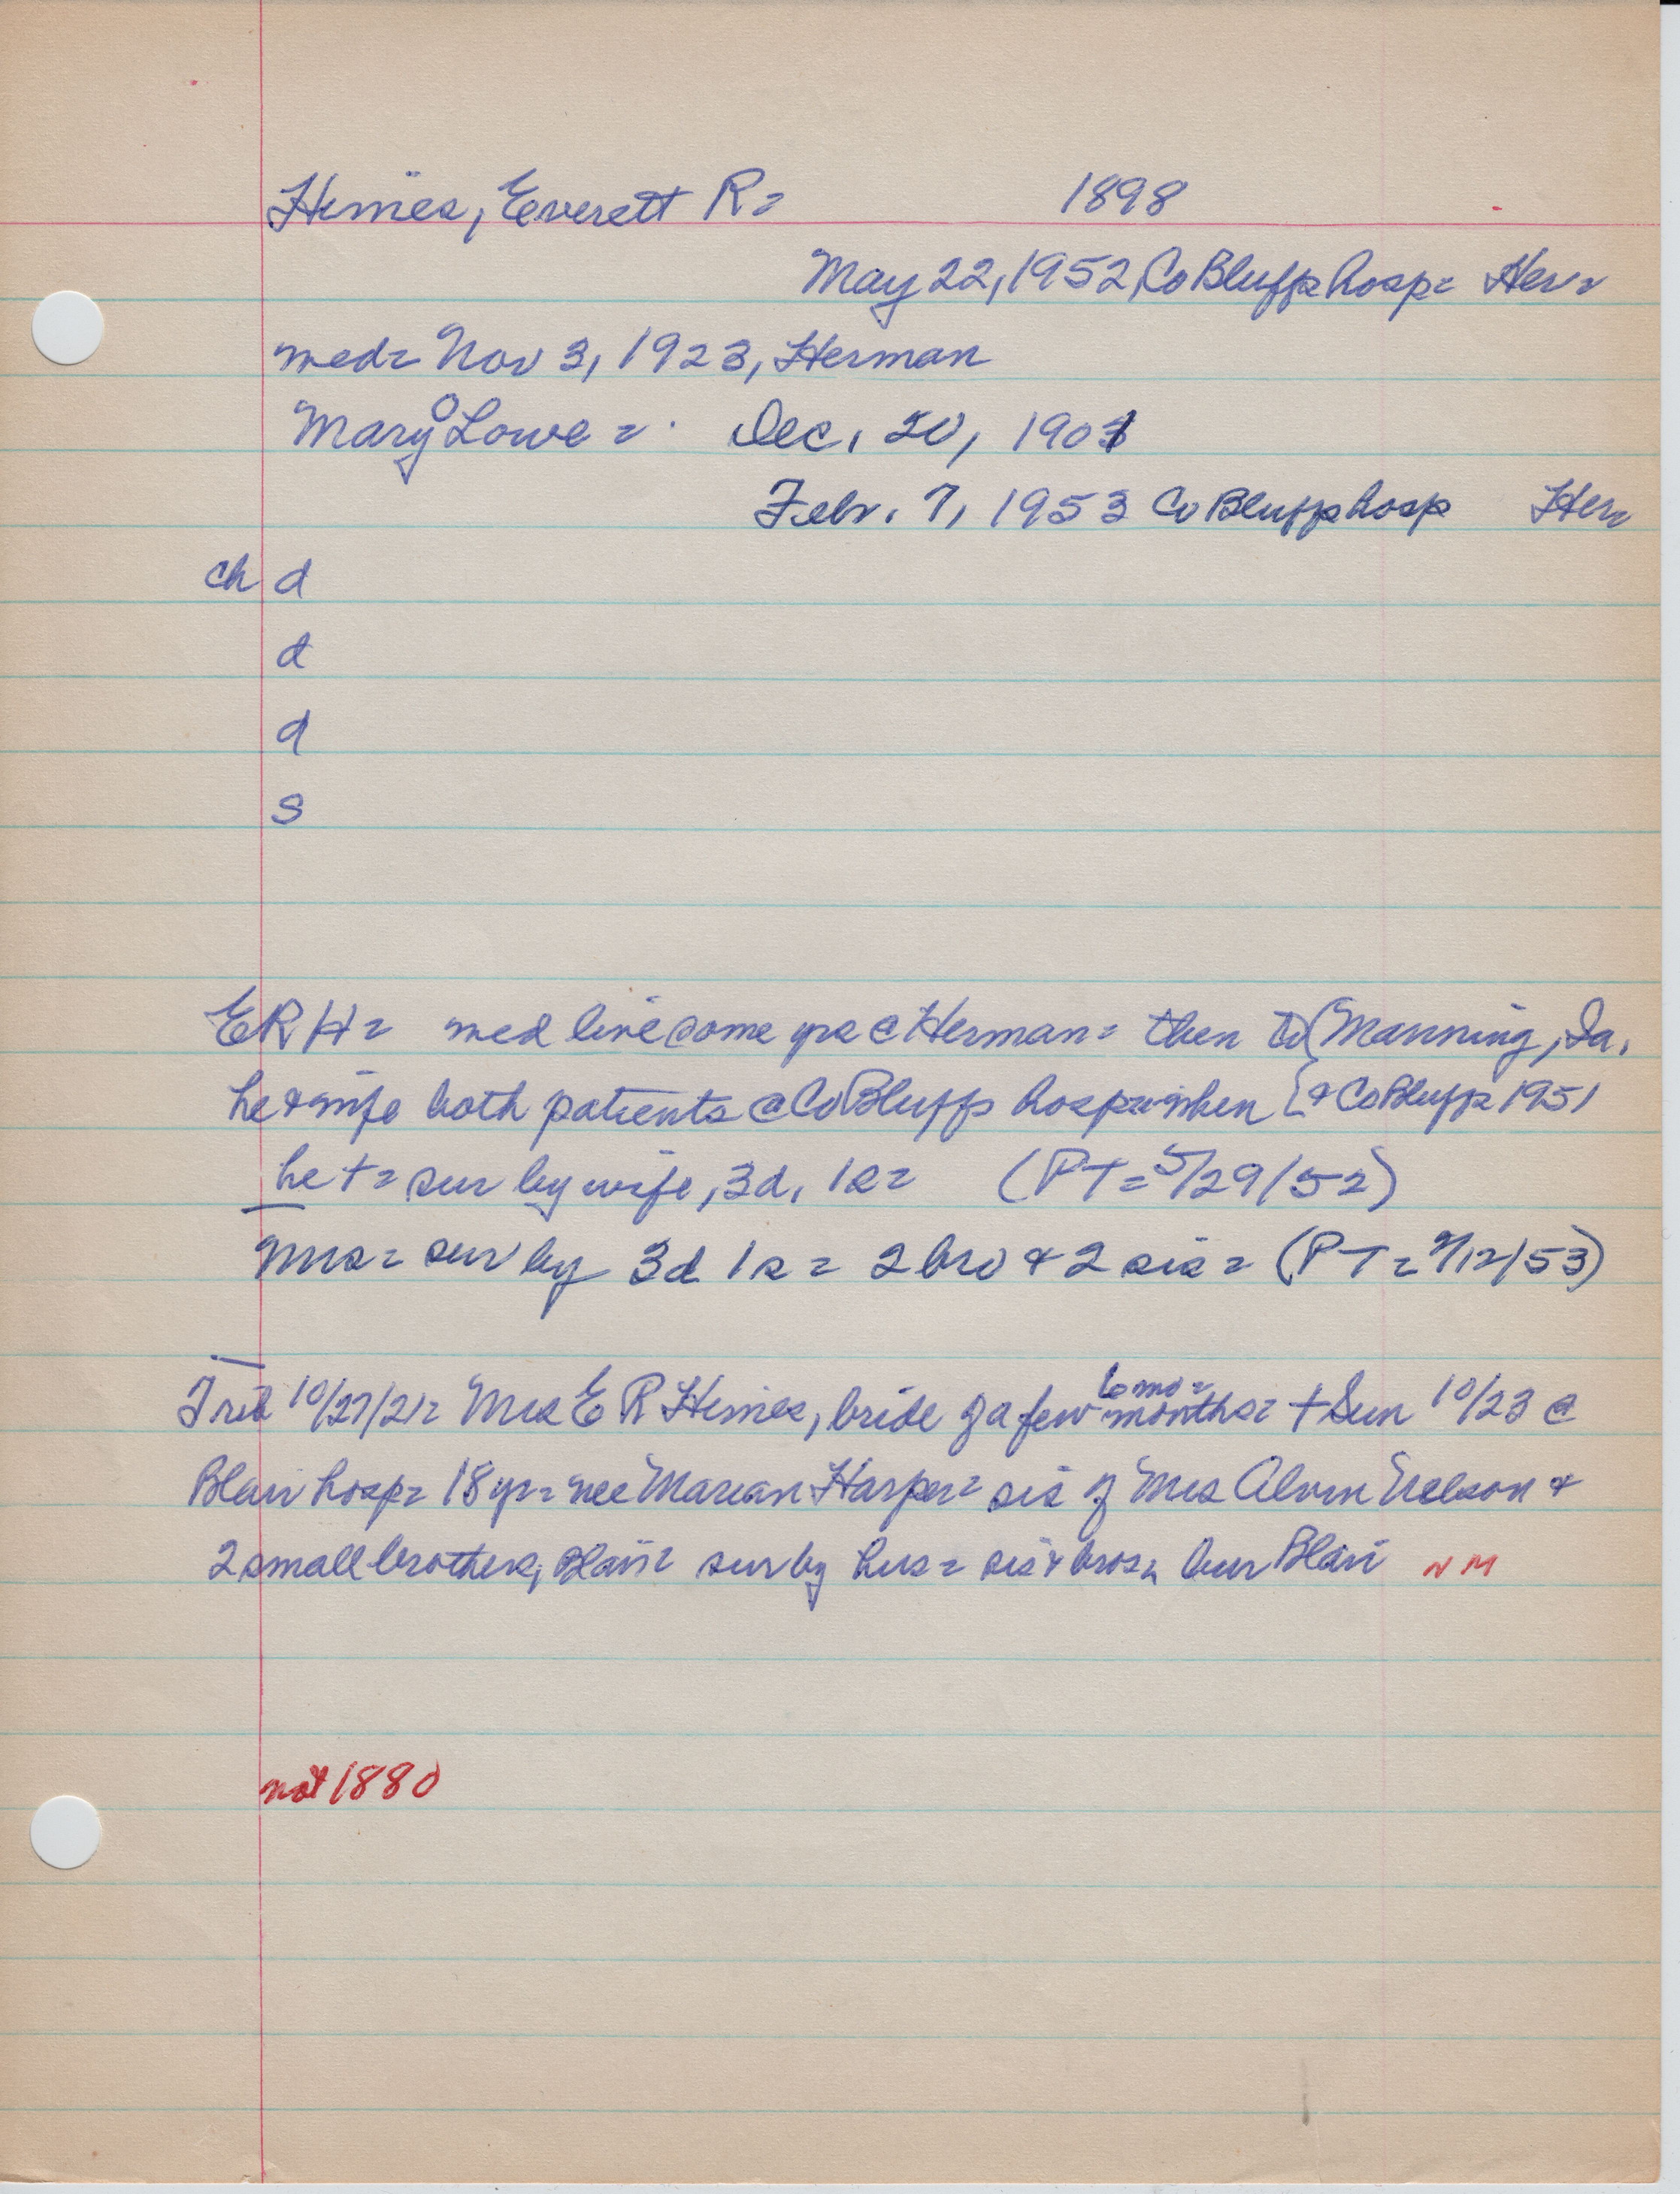 Himes, Everett R= 1898
May 22, 1952, Co Bluffs hosp= Her=
med= Nov 3, 1923, Herman
Mary O Lowe = Dec. 20, 1901
Febr. 7, 1953 Co Bluffs hosp Her
ch d
d
d
s
ERH= med live some yrs @ Herman= then to Manning, Ia.
he & wife both patients @ Co Bluffs hosp when [& Co Bluffs 1951
he += sur by wife, 3d, 1s= (PT=5/29/52)
Mrs= sur by 3d 1s = 2 bro & 2 sis = (PT=2/12/53)
6 mo=
Trib 10/27/21= Mrs E R Himes, bride of a few months= + Sun 10/23 @
Blair hosp= 18 yr= nee Marian Harper= sis of Mrs Alvin Nelson &
2 small brothers, Blair= sur by hus= sis & bros= bur Blair NM
not 1880